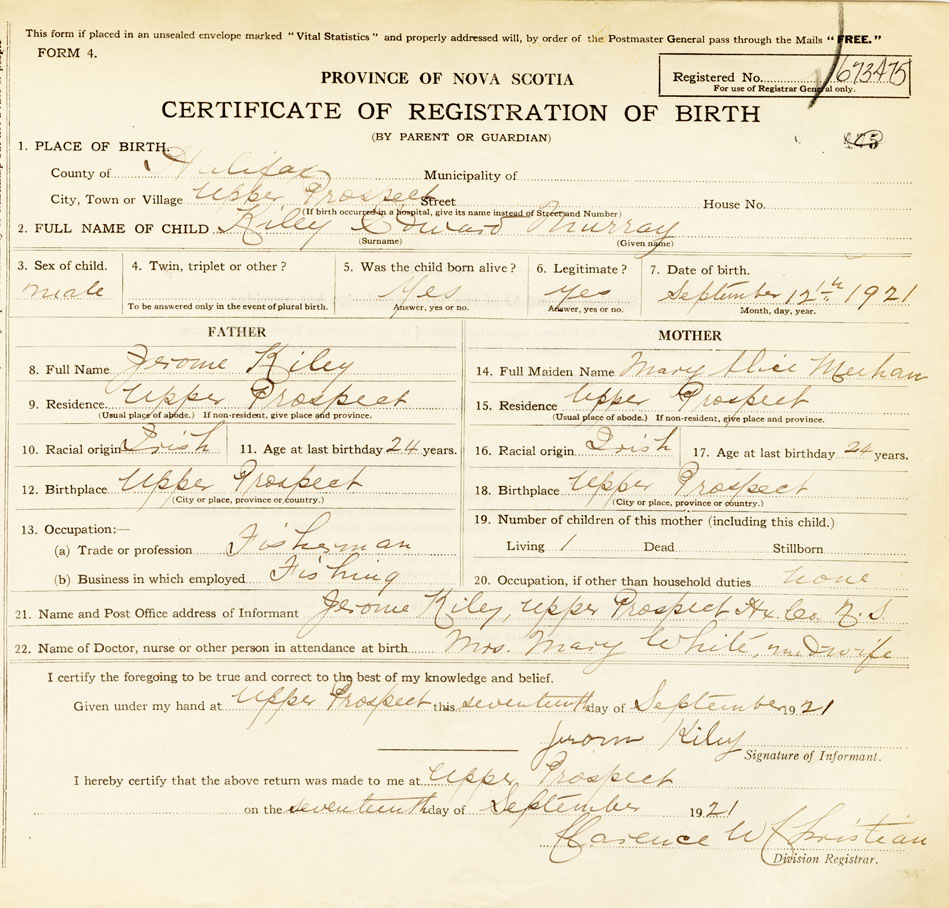 This form if placed in an unsealed envelope marked "Vital Statistics" and properly addressed will, by order of the Postmaster General pass through the Mails "FREE."
FORM 4.
PROVINCE OF NOVA SCOTIA
Registered No. 673475
For use of Registrar General only.
CERTIFICATE OF REGISTRATION OF BIRTH
(BY PARENT OR GUARDIAN)
1. PLACE OF BIRTH.
County of Halifax Municipality of
City, Town or Village Upper Prospect Street House No.
(If birth occurred in a hospital, give its name instead of Street and Number)
2. FULL NAME OF CHILD Kiley Edward Murray
(Surname) (Given name)
3. Sex of child. 4. Twin, triplet or other? 5. Was the child born alive? 6. Legitimate? 7. Date of birth.
male Yes yes September 12th 1921
To be answered only in the event of plural birth. Answer, yes or no. Answer, yes or no. Month, day, year.
FATHER MOTHER
8. Full Name Jerome Kiley 14. Full Maiden Name Mary Alice Meehan
9. Residence Upper Prospect 15. Residence Upper Prospect
(Usual place of abode.) If non-resident, give place and province. (Usual place of abode.) If non-resident, give place and province.
10. Racial origin Irish 11. Age at last birthday 24 years. 16. Racial origin Irish 17. Age at last birthday 24 years.
12. Birthplace Upper Prospect 18. Birthplace Upper Prospect
(City or place, province or country.) (City or place, province or country.)
13. Occupation:— 19. Number of children of this mother (including this child.)
(a) Trade or profession Fisherman Living 1 Dead Stillborn
(b) Business in which employed Fishing 20. Occupation, if other than household duties none
21. Name and Post Office address of Informant Jerome Kiley, Upper Prospect Hx. Co. N. S.
22. Name of Doctor, nurse or other person in attendance at birth Mrs. Mary White, midwife
I certify the foregoing to be true and correct to the best of my knowledge and belief.
Given under my hand at Upper Prospect this seventeenth day of September 1921
Jerom Kiley
Signature of Informant.
I hereby certify that the above return was made to me at Upper Prospect
on the seventeenth day of September 1921
Clarence W Christian
Division Registrar.